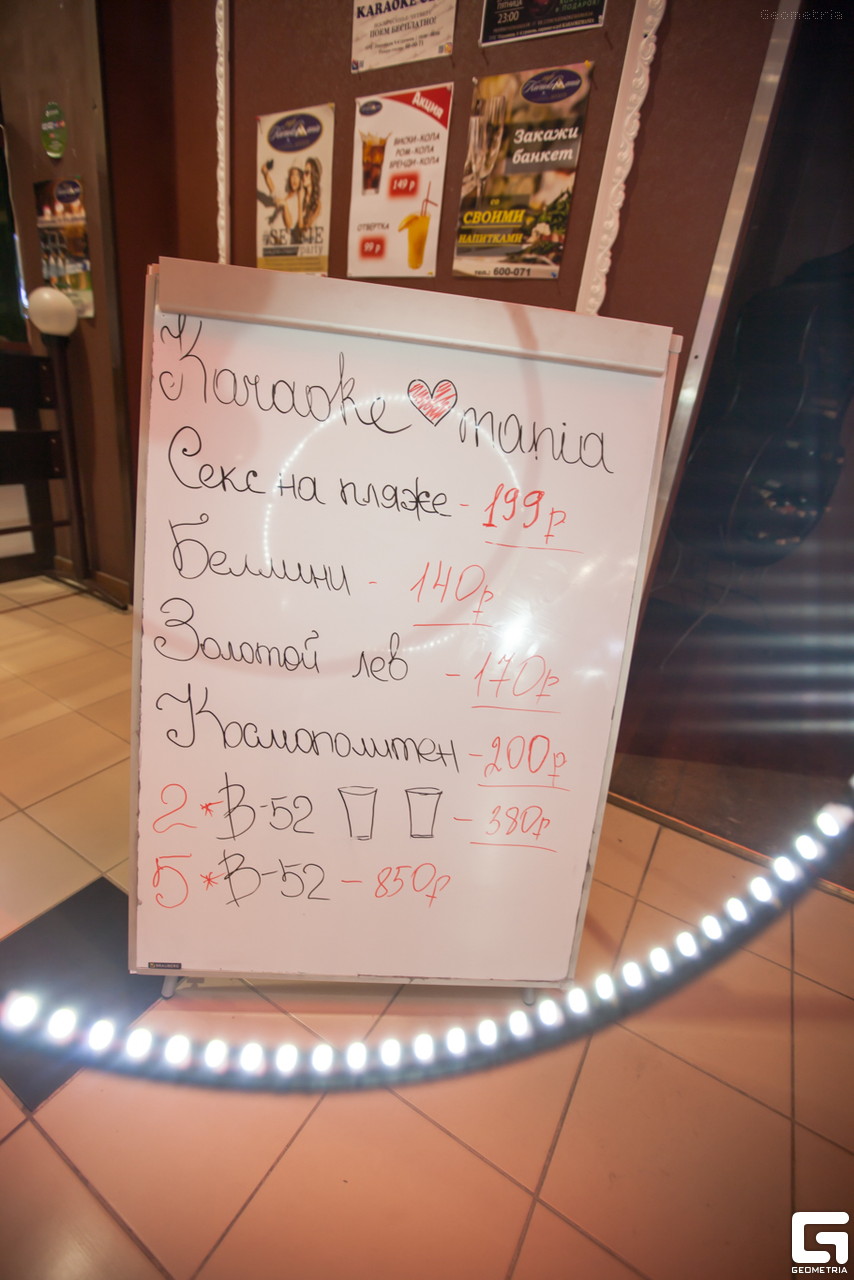 Geometria
KARAOKE
ПОЕМ БЕСПЛАТНО!
ПЯТНИЦА
23:00
Акция
ВИСКИ-КОЛА
РОМ-КОЛА
БРЕНДИ-КОЛА
149 р
ОТВЕРТКА
99 р
party
Закажи
банкет
со
СВОИМИ
НАПИТКАМИ
тел.: 600-071
Karaoke mania
Секс на пляже - 199р
Беллини - 140р
Золотой лев - 170р
Космополитен - 200р
2 * B-52 - 380р
5 * B-52 - 850р
GEOMETRIA